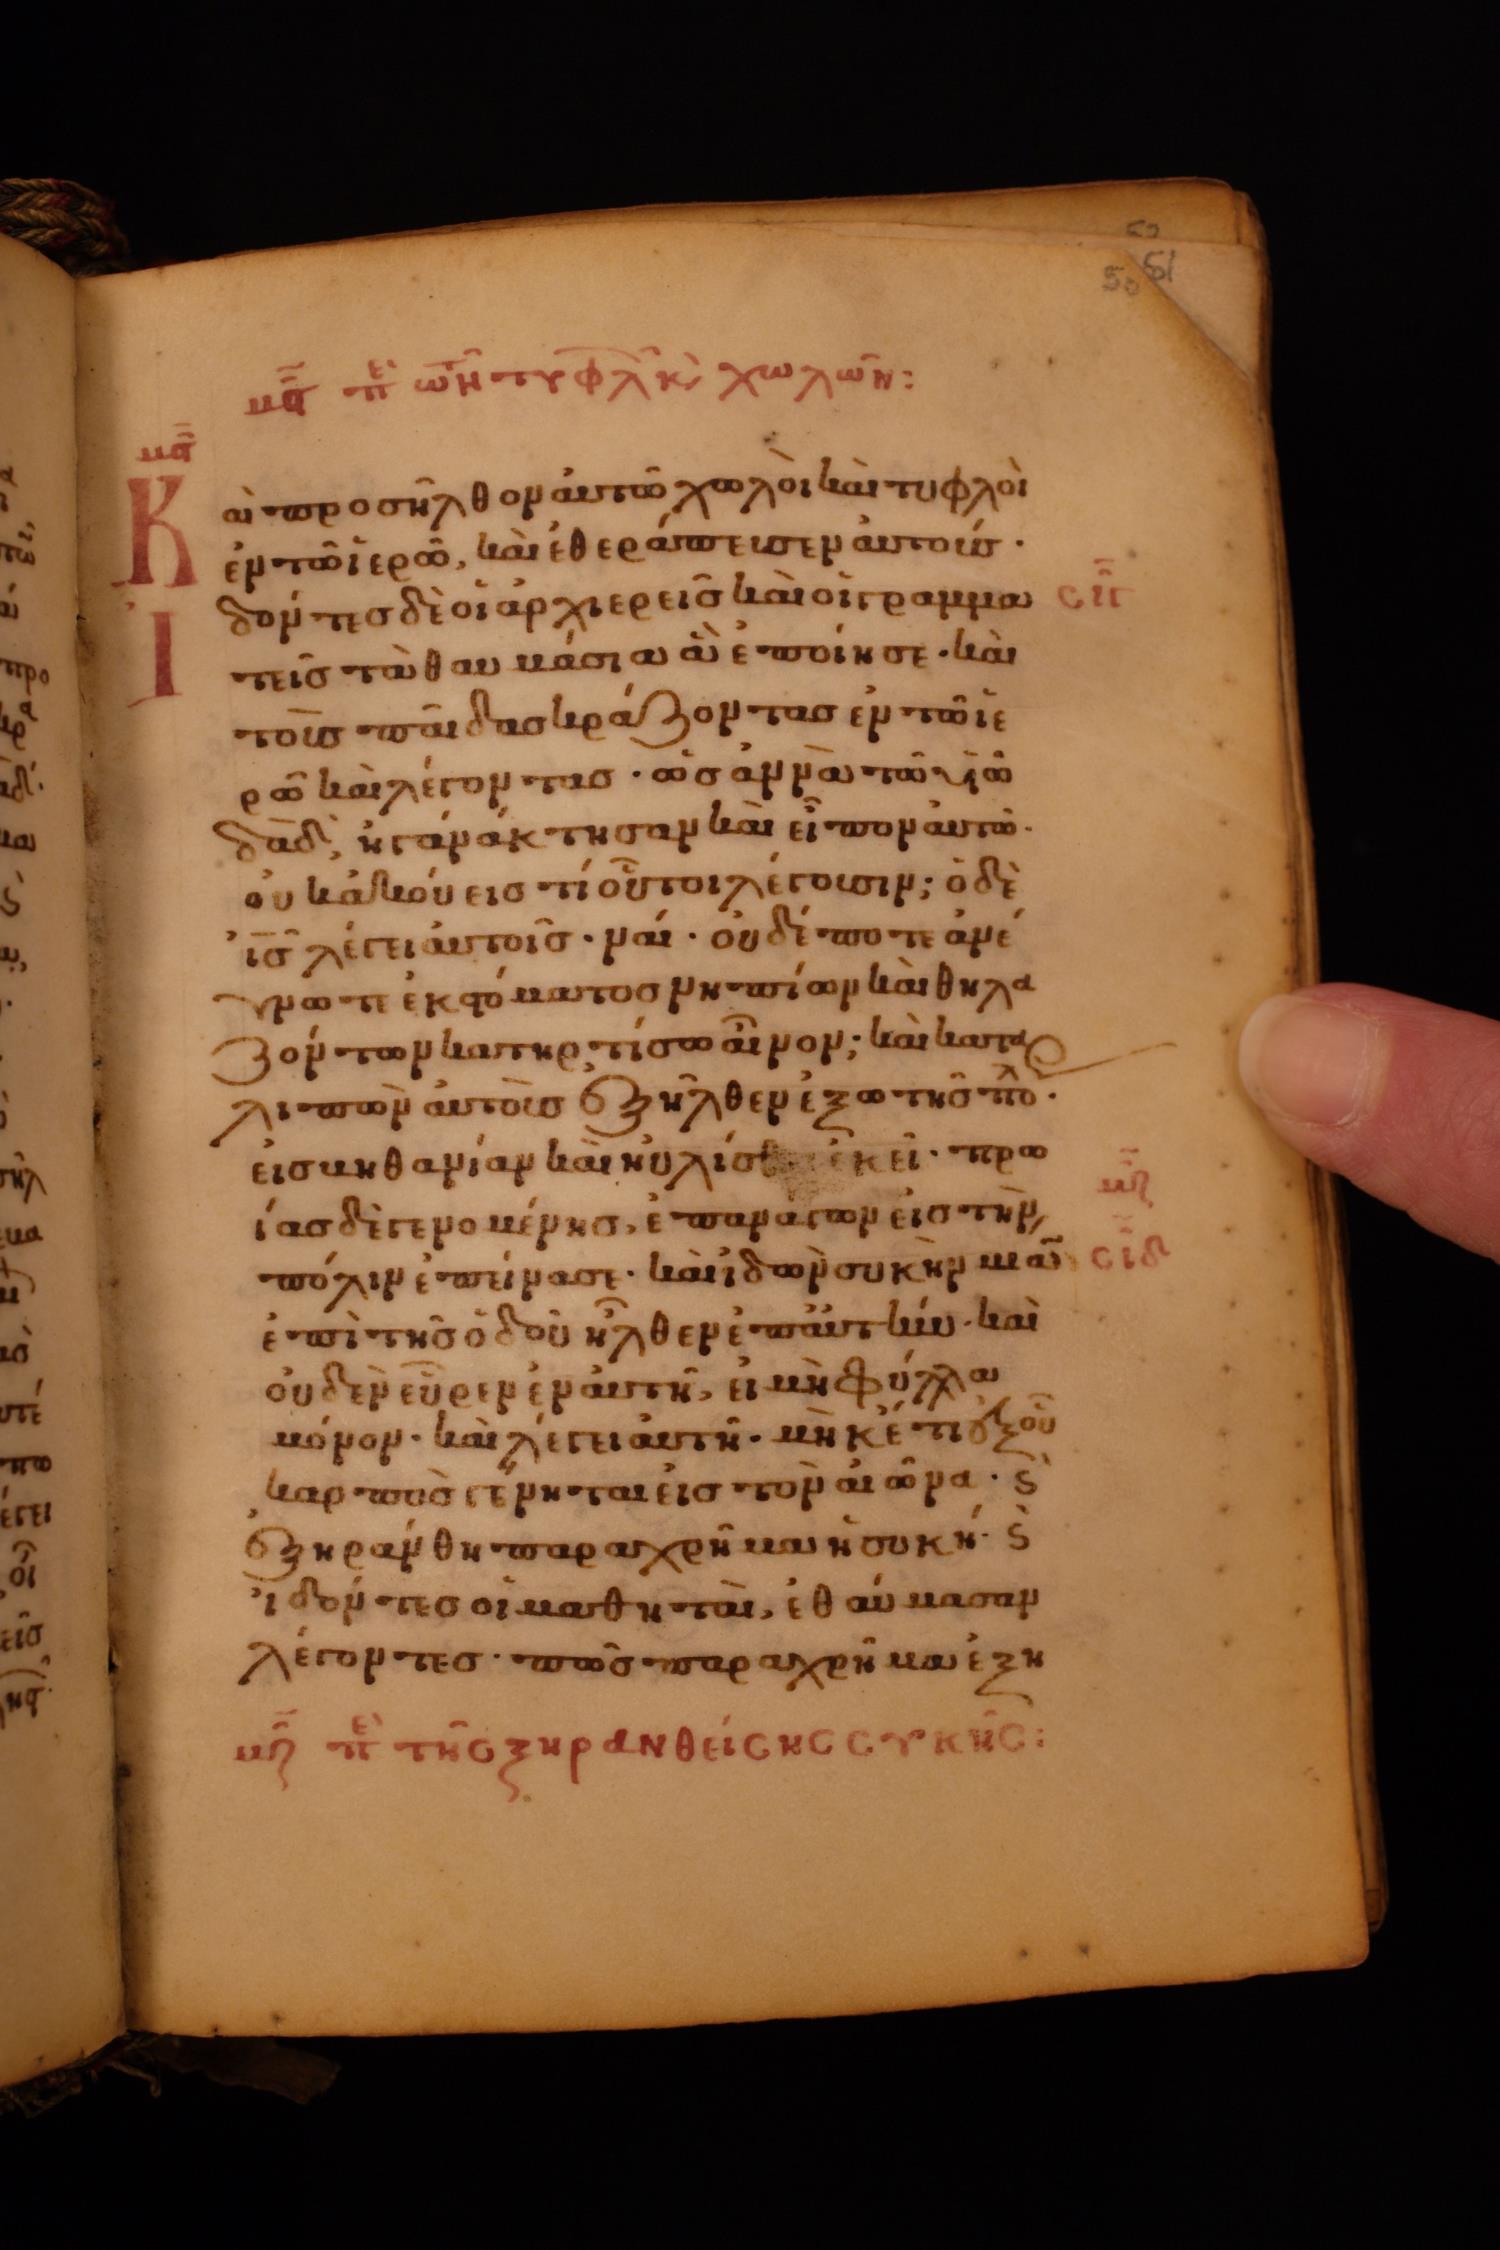 52
50 51
μϛ̄ πε τῶν τυφλῶν κ(αὶ) χωλῶν:
μϛ̄
Καὶ προσῆλθον αὐτῶ χωλοὶ καὶ τυφλοὶ
ἐν τῶ ἱερῶ, καὶ ἐθεράπευσεν αὐτούς·
Ἰδόντες δὲ οἱ ἀρχιερεῖς καὶ οἱ γραμμα
σιγ
τεῖς τὰ θαυμάσια ἃ ἐποίησε· καὶ
τοὺς παῖδας κράζοντας ἐν τῶ ἱε
ρῶ καὶ λέγοντας· ὡσαννὰ τῶ υἱῶ
δᾱδ, ἠγανάκτησαν καὶ εἶπον αὐτῶ·
οὐκ ἀκούεις τί οὗτοι λέγουσιν; ὁ δὲ
ἰ̅ς̅ λέγει αὐτοῖς· ναί· οὐδέποτε ἀνέ
γνωτε ἐκ στόματος νηπίων καὶ θηλα
ζόντων κατηρτίσω αἶνον; καὶ κατα
λιπὼν αὐτοὺς ἐξῆλθεν ἔξω τῆς πό̅λ·
εἰς βηθανίαν καὶ ηὐλίσθη ἐκεῖ· πρω
ίας δὲ γενομένης, ἐπαναγων εἰς τὴν
μζ̄
πόλιν ἐπείνασε· καὶ ἰδὼν συκὴν μίαν
σιδ
ἐπὶ τῆς ὁδοῦ ἦλθεν ἐπ' αὐτὴν· καὶ
οὐδὲν εὗρεν ἐν αὐτῆ, εἰ μὴ φύλλα
μόνον· καὶ λέγει αὐτῆ· μὴκέτι ἐκ σοῦ
καρπὸς γένηται εἰς τὸν αἰῶνα· ϛ̀
ἐξηράνθη παραχρῆμα ἡ συκή· ϛ̀
ἰδόντες οἱ μαθηταὶ, ἐθαύμασαν
λέγοντες· πῶς παραχρῆμα ἐξη
μζ̄ πε τῆς ξηρανθείσης συκῆς: